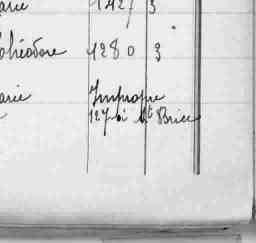 arie 1427 3
Théodore 1280 3
arie Impropre
127 à St Brice